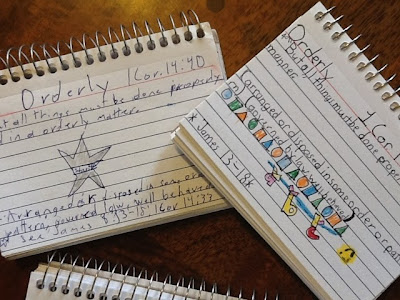 Orderly 1 Cor. 14:40
all things must be done properly
and in orderly matters
Arranged or disposed in some order
pattern, governed by law, well behaved
See James 3:13-18; 1 Cor 14:33
Orderly 1 Cor. 1
But all things must be done properly
manner.
(arranged or disposed in some order or patt
governed by law, well behaved)
* James 13-18